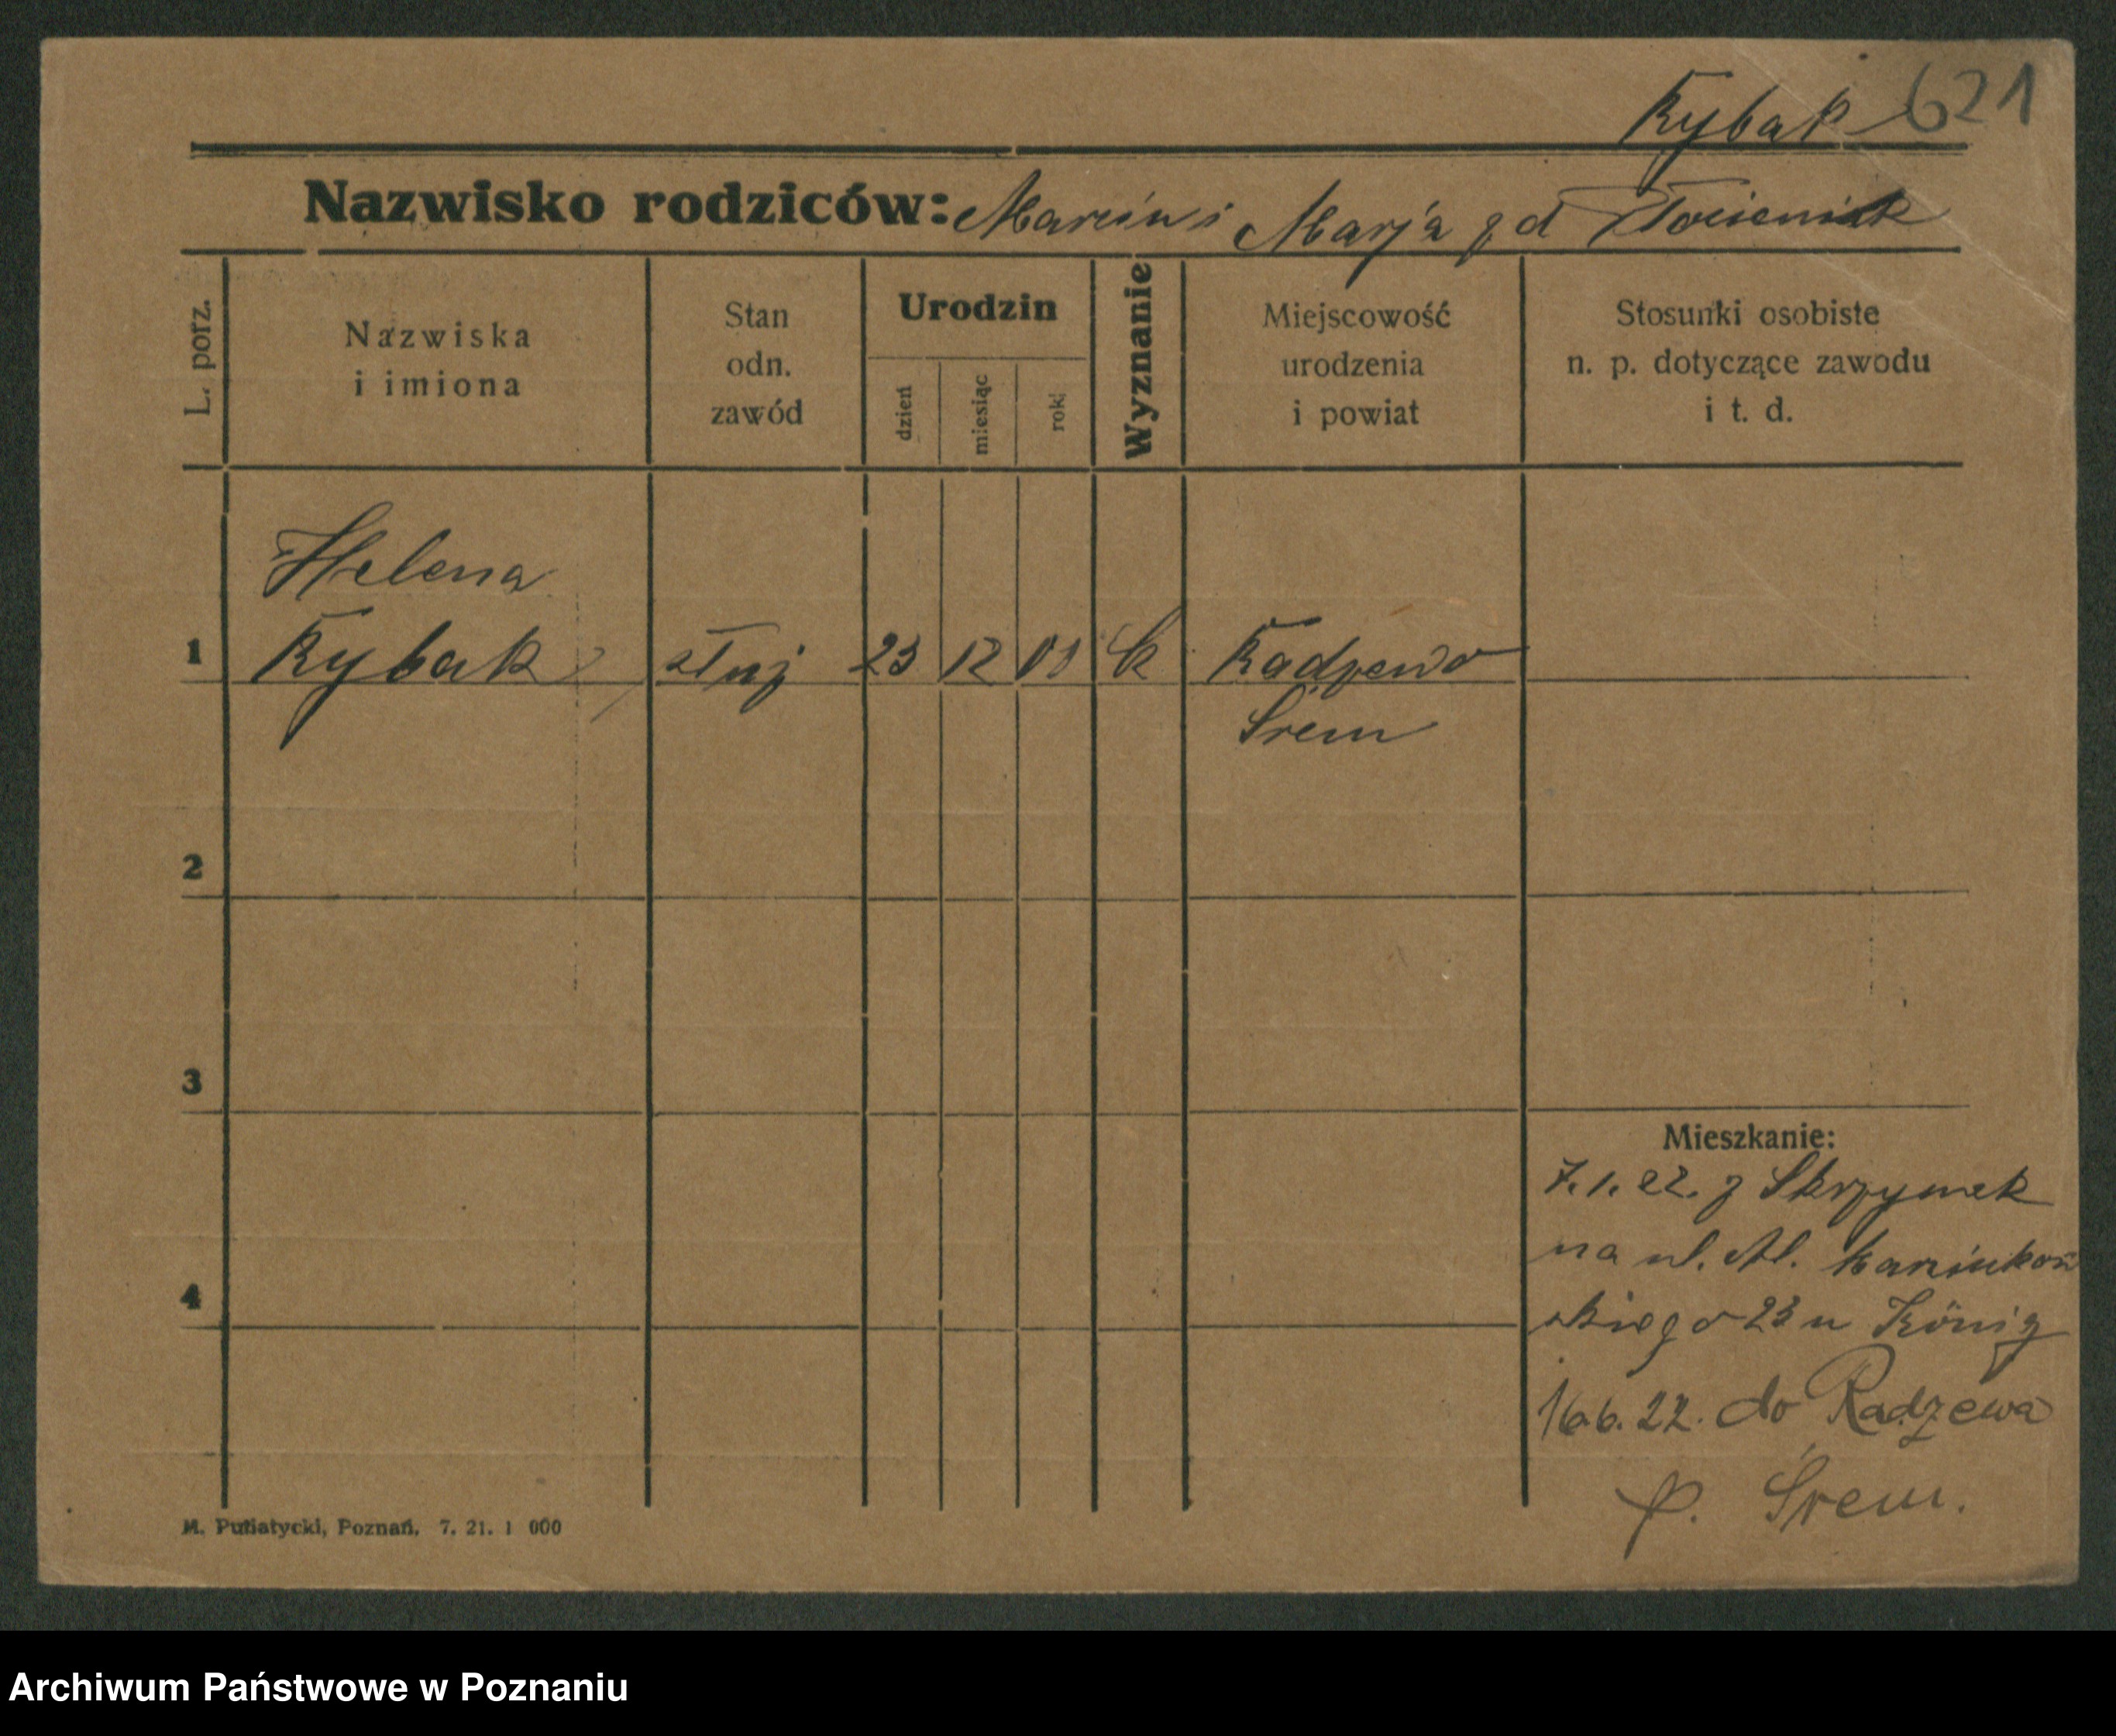 Rybak 621
Nazwisko rodziców: Marcin i Marja z d
L. porz.
Nazwiska
i imiona
Stan
odn.
zawód
Urodzin
dzień
miesiąc
rok
Wyznanie
Miejscowość
urodzenia
i powiat
Stosunki osobiste
n. p. dotyczące zawodu
i t. d.
Helena
1 Rybak służ 23 12 01 k Radzewo
Śrem
2
3
Mieszkanie:
7.1.22. z Skrzynek
na ul. Al. Marcinkow
4
skiego 23 u König
16.6.22. do Radzewa
p. Śrem.
M. Putiatycki, Poznań. 7. 21. 1 000
Archiwum Państwowe w Poznaniu